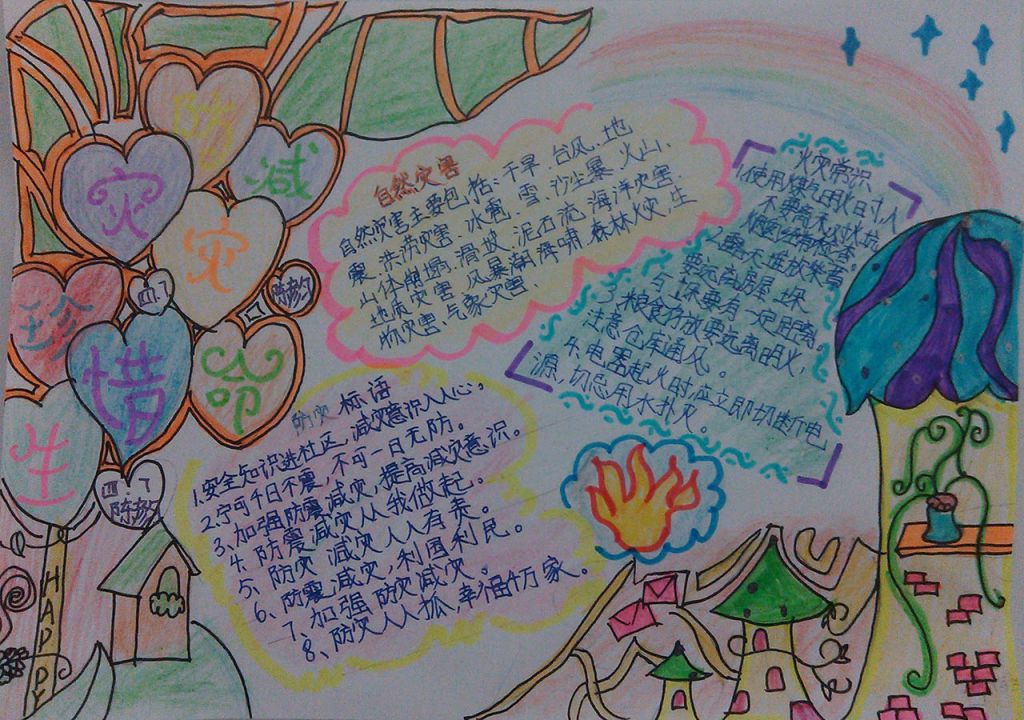 防
灾
减
灾
珍
惜
生
命
四.7
四.7
HAPPY
自然灾害
自然灾害主要包括:干旱、台风、地
震、洪涝灾害、冰雹、雪、沙尘暴、火山、
山体崩塌、滑坡、泥石流、海洋灾害、
地质灾害、风暴潮、海啸、森林火灾、生
物灾害、气象灾害、
火灾常识
1.使用煤气明火时,人
不要离
2.
要远离房屋
3、粮食存放要远离明火,
注意仓库通风。
4.电器起火时,应立即切断电
源,切忌用水扑灭。
防灾标语
1.安全知识进社区,减灾意识入人心。
2.宁可千日不震,不可一日无防。
3、加强防震减灾,提高减灾意识。
4、防震减灾从我做起。
5、防灾减灾人人有责。
6、防震减灾,利国利民。
7、加强防灾减灾。
8、防灾人人抓,幸福千万家。